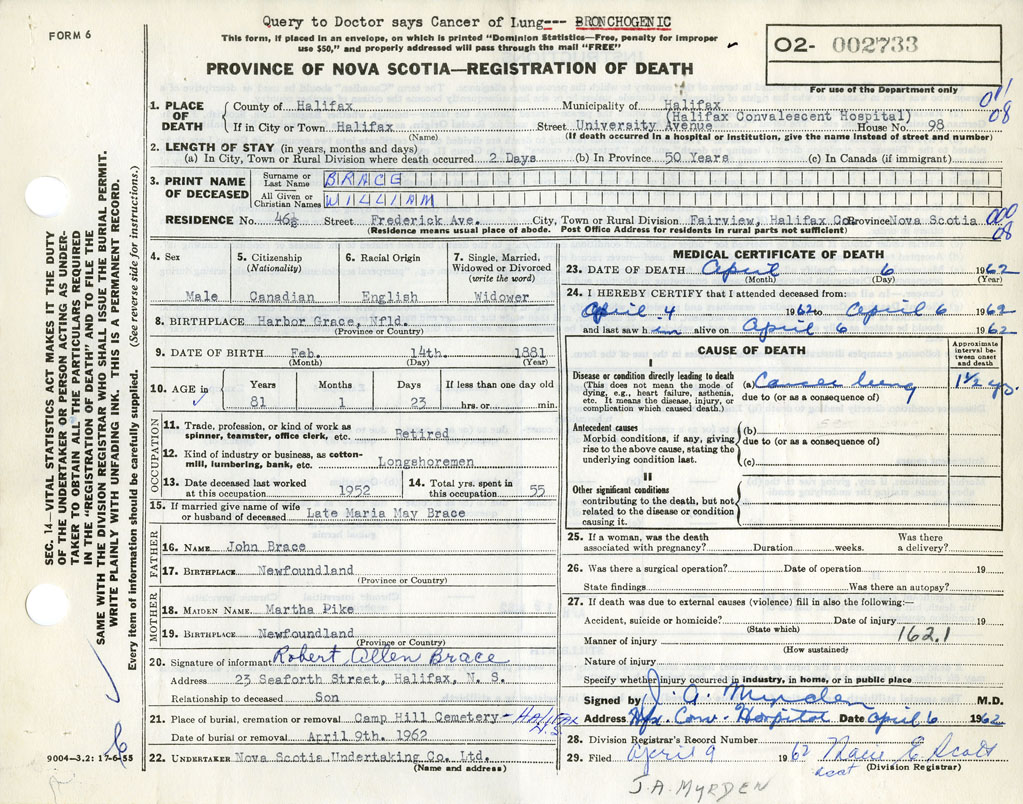 Query to Doctor says Cancer of Lung--- BRONCHOGENIC
FORM 6
This form, if placed in an envelope, on which is printed "Dominion Statistics—Free, penalty for improper
use $50," and properly addressed will pass through the mail "FREE"
02- 002733
PROVINCE OF NOVA SCOTIA—REGISTRATION OF DEATH
For use of the Department only
1. PLACE OF DEATH County of Halifax Municipality of Halifax
(Halifax Convalescent Hospital)
08
If in City or Town Halifax Street University Avenue House No. 98
(Name) (If death occurred in a hospital or institution, give the name instead of street and number)
2. LENGTH OF STAY (in years, months and days)
(a) In City, Town or Rural Division where death occurred 2 Days (b) In Province 50 Years (c) In Canada (if immigrant)
3. PRINT NAME OF DECEASED Surname or Last Name BRACE
All Given or Christian Names WILLIAM
RESIDENCE No. 46½ Street Frederick Ave. City, Town or Rural Division Fairview, Halifax Co. Province Nova Scotia 000
08
(Residence means usual place of abode. Post Office Address for residents in rural parts not sufficient)
4. Sex 5. Citizenship (Nationality) 6. Racial Origin 7. Single, Married, Widowed or Divorced (write the word)
Male Canadian English Widower
8. BIRTHPLACE Harbor Grace, Nfld.
(Province or Country)
9. DATE OF BIRTH Feb. 14th. 1881
(Month) (Day) (Year)
10. AGE in Years Months Days If less than one day old
81 1 23 hrs. or min.
OCCUPATION
11. Trade, profession, or kind of work as spinner, teamster, office clerk, etc. Retired
12. Kind of industry or business, as cotton-mill, lumbering, bank, etc. Longshoremen
13. Date deceased last worked at this occupation 1952 14. Total yrs. spent in this occupation 55
15. If married give name of wife or husband of deceased Late Maria May Brace
FATHER
16. NAME John Brace
17. BIRTHPLACE Newfoundland
(Province or Country)
MOTHER
18. MAIDEN NAME Martha Pike
19. BIRTHPLACE Newfoundland
(Province or Country)
20. Signature of informant Robert Allen Brace
Address 23 Seaforth Street, Halifax, N. S.
Relationship to deceased Son
21. Place of burial, cremation or removal Camp Hill Cemetery - HALIFAX N.S
Date of burial or removal April 9th. 1962
22. UNDERTAKER Nova Scotia Undertaking Co. Ltd.
(Name and address)
MEDICAL CERTIFICATE OF DEATH
23. DATE OF DEATH April 6 1962
(Month) (Day) (Year)
24. I HEREBY CERTIFY that I attended deceased from:
April 4 1962 to April 6 1962
and last saw h im alive on April 6 1962
CAUSE OF DEATH
Approximate interval between onset and death
I
Disease or condition directly leading to death
(This does not mean the mode of dying, e.g., heart failure, asthenia, etc. It means the disease, injury, or complication which caused death.)
(a) Cancer lung 1½ yrs.
due to (or as a consequence of)
Antecedent causes
Morbid conditions, if any, giving rise to the above cause, stating the underlying condition last.
(b)
due to (or as a consequence of)
(c)
II
Other significant conditions
contributing to the death, but not related to the disease or condition causing it.
25. If a woman, was the death associated with pregnancy? Duration weeks. Was there a delivery?
26. Was there a surgical operation? Date of operation 19
State findings Was there an autopsy?
27. If death was due to external causes (violence) fill in also the following:—
Accident, suicide or homicide? Date of injury 19
(State which)
162.1
Manner of injury
(How sustained)
Nature of injury
Specify whether injury occurred in industry, in home, or in public place
Signed by J. A. Myrden M.D.
Address Hfx. Conv. Hospital Date April 6 1962
28. Division Registrar's Record Number
29. Filed April 9 1962
(Division Registrar)
J.A. MYRDEN
SEC. 14—VITAL STATISTICS ACT MAKES IT THE DUTY
OF THE UNDERTAKER OR PERSON ACTING AS UNDER-
TAKER TO OBTAIN ALL THE PARTICULARS REQUIRED
IN THE "REGISTRATION OF DEATH" AND TO FILE THE
SAME WITH THE DIVISION REGISTRAR WHO SHALL ISSUE THE BURIAL PERMIT.
WRITE PLAINLY WITH UNFADING INK. THIS IS A PERMANENT RECORD.
Every item of information should be carefully supplied. (See reverse side for instructions.)
9004—3.2: 17-6-55